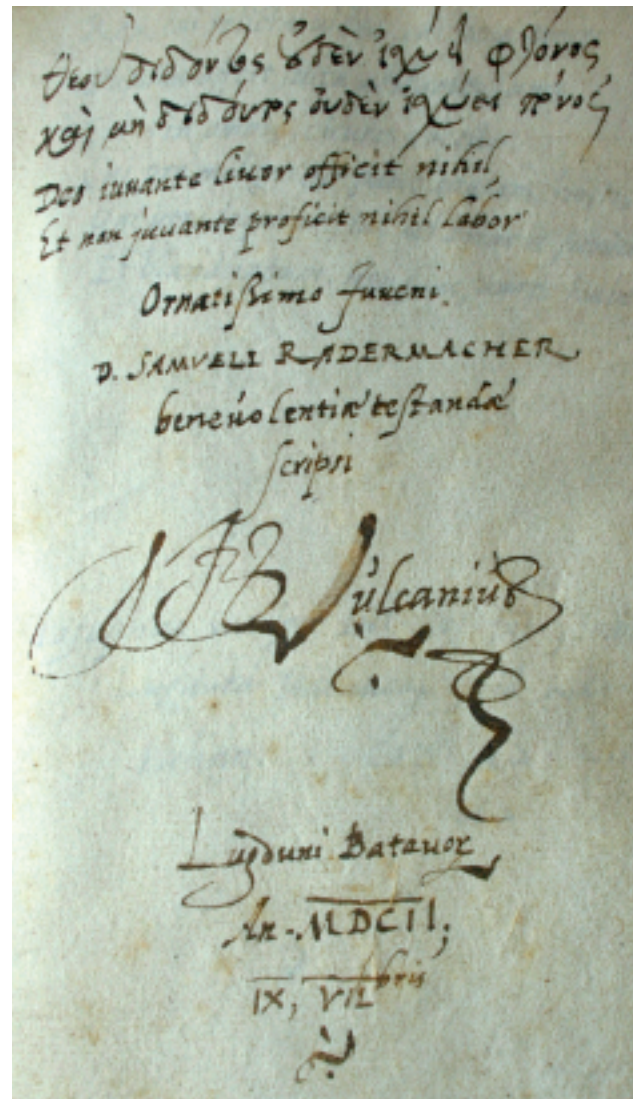 θεοῦ διδόντος οὐδὲν ἰσχύει φθόνος
καὶ μὴ διδόντος οὐδὲν ἰσχύει πόνος
Deo iuuante liuor officit nihil,
Et non juuante proficit nihil labor
Ornatißimo Juueni.
D. SAMVELI RADERMACHER
beneuolentiæ testandæ
scripsi
B Vulcanius
Lugduni Batauor
An. MDCII;
IX, VIIbris